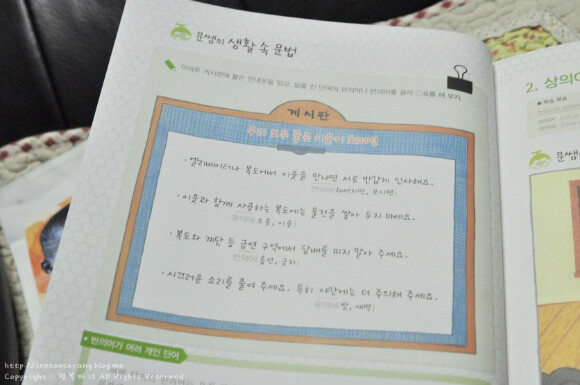 문쌤의 생활 속 문법
아파트 게시판에 붙은 안내문을 읽고, 밑줄 친 단어의 유의어나 반의어를 골라 ○표를 해 보자.
게시판
우리 모두 좋은 이웃이 되려면
· 엘리베이터나 복도에서 이웃을 만나면 서로 반갑게 인사해요.
반의어(헤어지면, 모이면)
· 이웃과 함께 사용하는 복도에는 물건을 쌓아 두지 마세요.
유의어(소용, 이용)
· 복도와 계단 등 금연 구역에서 담배를 피지 말아 주세요.
반의어(흡연, 금지)
· 시끄러운 소리를 줄여 주세요. 특히 야간에는 더 주의해 주세요.
유의어(밤, 새벽)
반의어가 여러 개인 단어
2. 상의어
문쌤
Copyright ⓒ All Rights Reserved